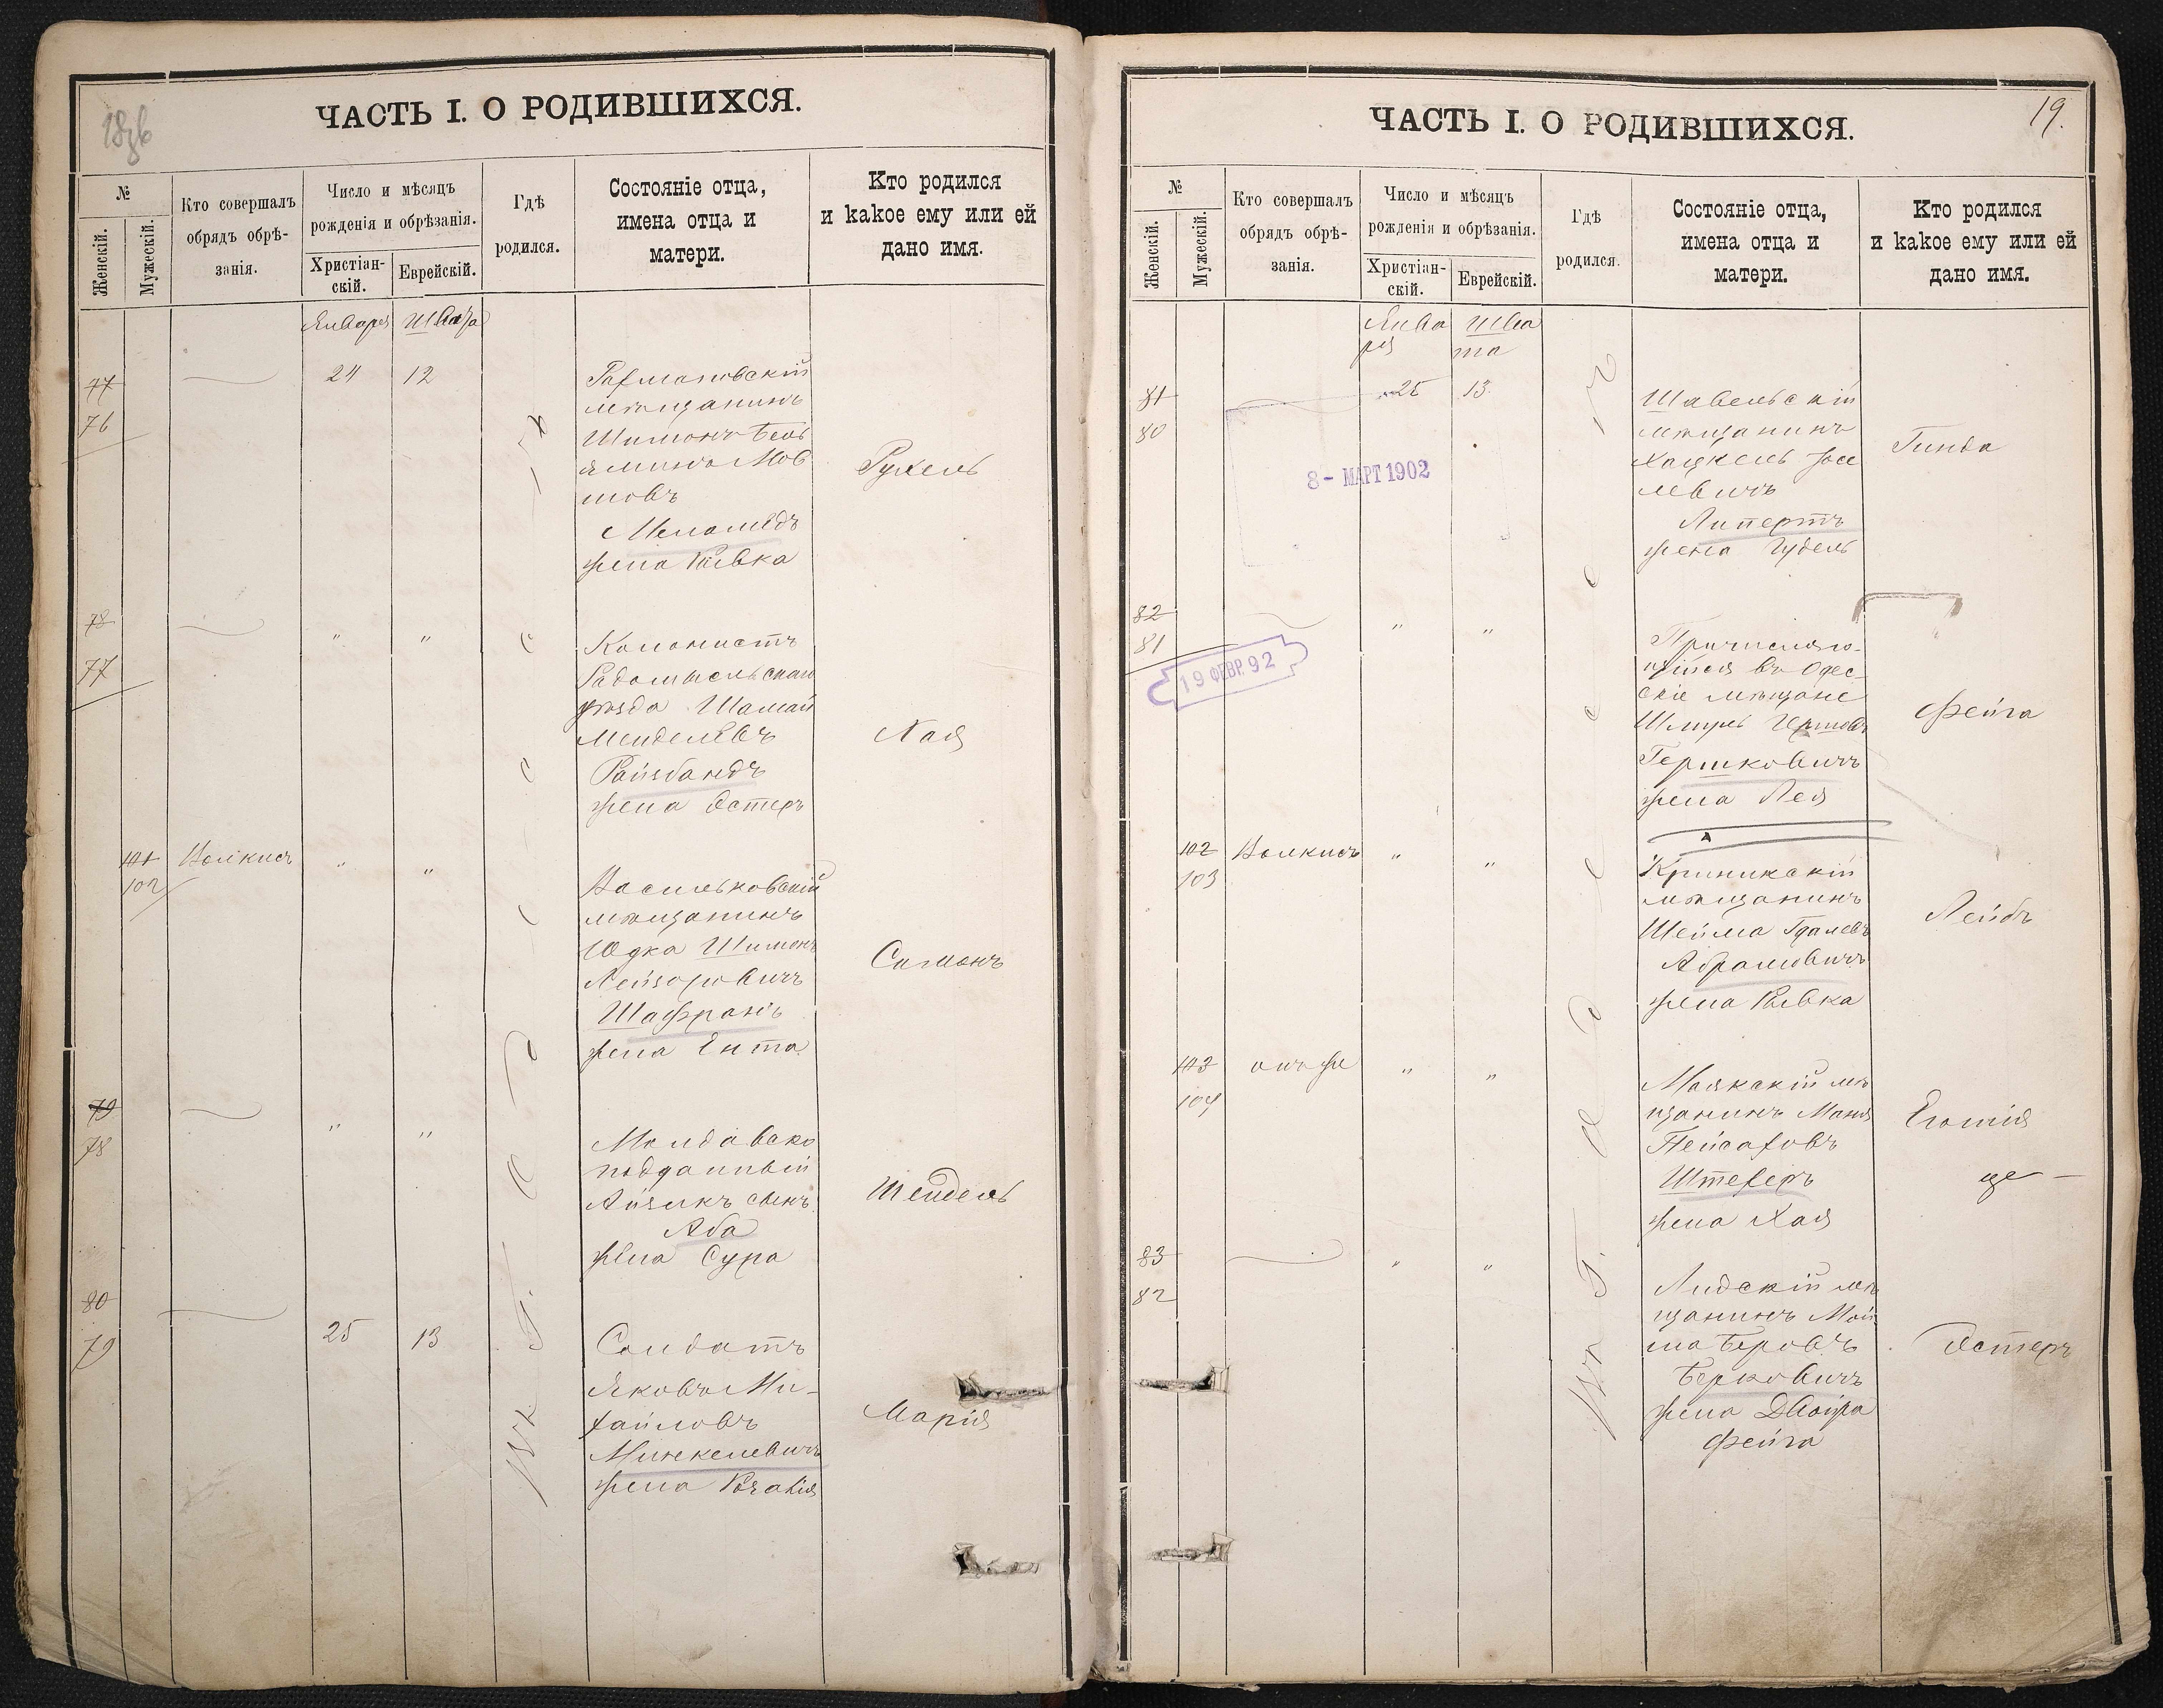 18 об
ЧАСТЬ I. О РОДИВШИХСЯ.
№
Женскій.
Мужескій.
Кто совершалъ
обрядъ обрѣ-
занія.
Число и мѣсяцъ
рожденія и обрѣзанія.
Христіан-
скій.
Еврейскій.
Гдѣ
родился.
Состояніе отца,
имена отца и
матери.
Кто родился
и какое ему или ей
дано имя.
Января Швата
77
76
24 12
Рахмановскій
мѣщанинъ
Шимонъ Бень
яминъ Мов
шовъ
Меламедъ
жена Ривка
Рухель
78
77
" "
Колонистъ
Радомысльскаго
уѣзда Шамай
Менделевъ
Райзбандъ
жена Эстеръ
Хая
101
102
Волкисъ
" "
Васильковскій
мѣщанинъ
Юдка Шимонъ
Лейзоровичъ
Шафранъ
жена Ента
Симонъ
79
78
" "
Молдавско
подданный
Айзикъ сынъ
Аба
жена Сура
Шендель
80
79
25 13
Солдатъ
Яковъ Ми-
хайловъ
Минкелевичъ
жена Розалія
Марія
въ г. Одессѣ
19.
ЧАСТЬ I. О РОДИВШИХСЯ.
№
Женскій.
Мужескій.
Кто совершалъ
обрядъ обрѣ-
занія.
Число и мѣсяцъ
рожденія и обрѣзанія.
Христіан-
скій.
Еврейскій.
Гдѣ
родился.
Состояніе отца,
имена отца и
матери.
Кто родился
и какое ему или ей
дано имя.
Янва Шва
ря та
81
80
25 13
8 - МАРТ 1902
Шавельскій
мѣщанинъ
Хацкель Іосе
левичъ
Липертъ
жена Гудель
Гинда
82
81
19 ФЕВР. 92
" "
Причисляю-
щійся въ Одес-
скіе мѣщане
Шмуль
Гершковичъ
жена Лея
Фейга
102
103
Волкисъ
" "
Крынкскій
мѣщанинъ
Шейма Гдалевъ
Абрамовичъ
жена Ривка
Лейбъ
103
104
онъ же
" "
Маякскій мѣ
щанинъ Маня
Пейсаховъ
Штехеръ
жена Хая
83
82
" "
Лидскій мѣ
щанинъ Мой
ша Беровъ
Берковичъ
жена Двойра
Фейга
Эстеръ
въ г. Одессѣ